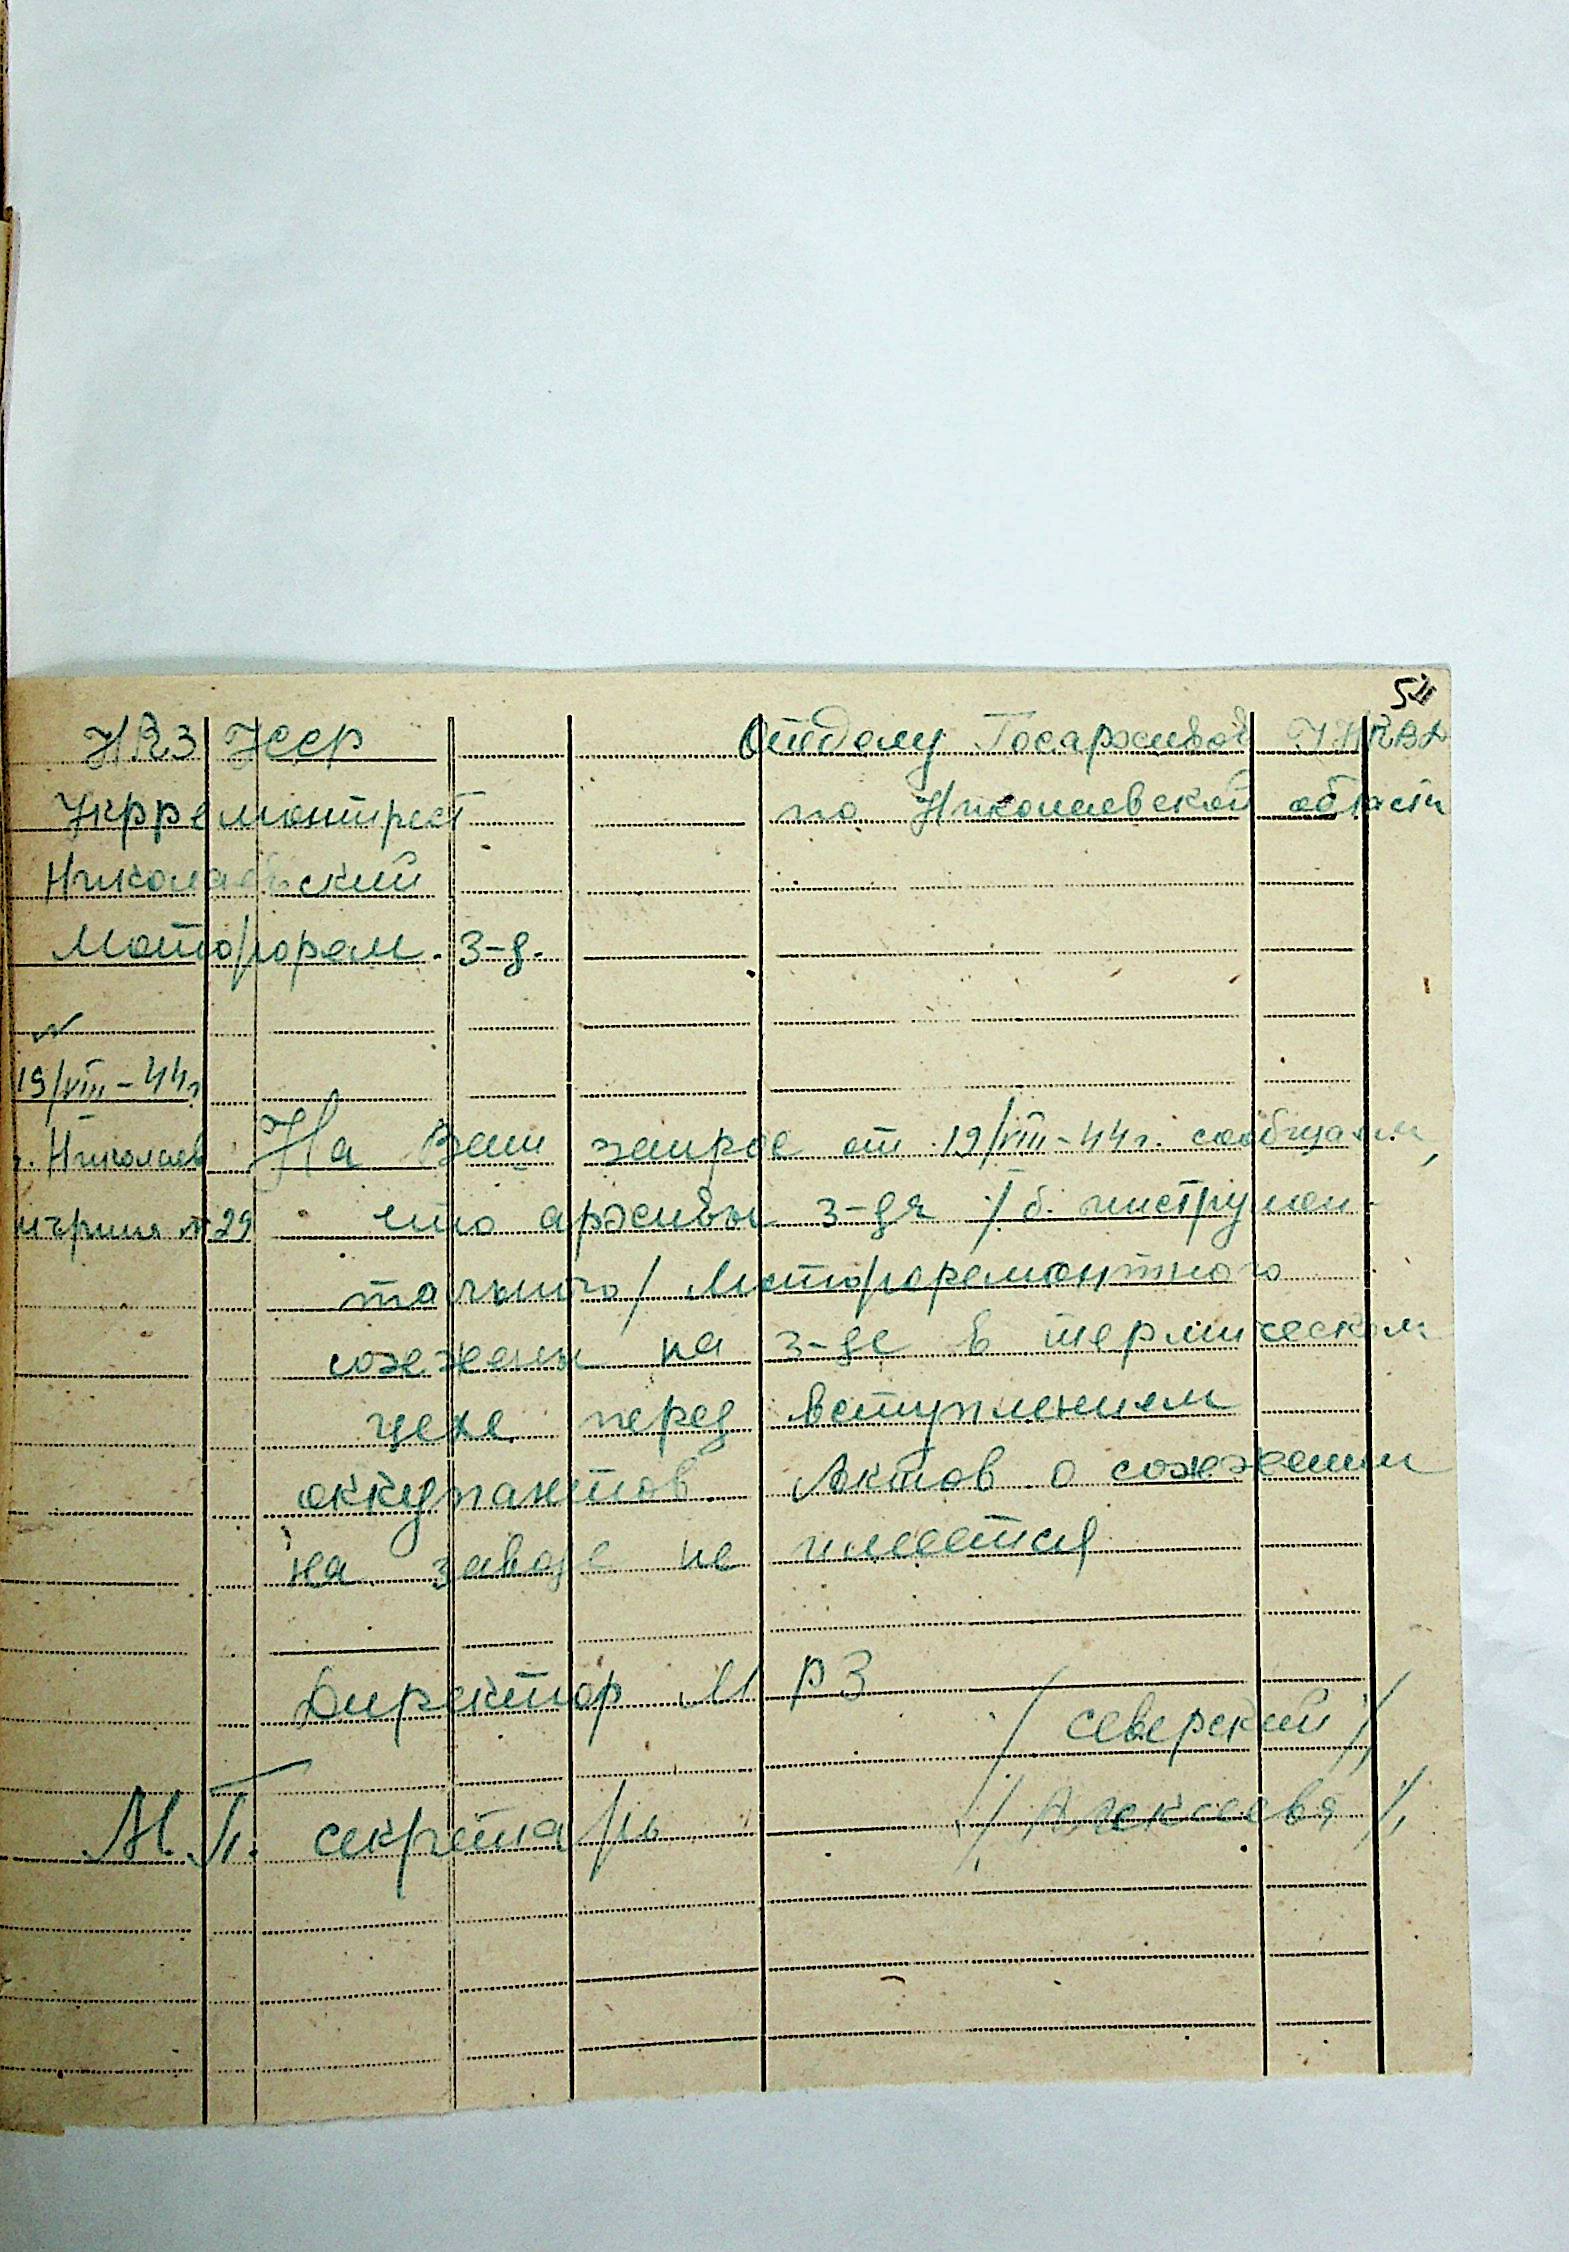 НКЗ УССР
Отделу Госархивов УНКВД
Укрремонтрест
по Николаевской области
Николаевский
Моторорем. з-д.
№
19/VIII-44г
г. Николаев
№ 29
На Ваш запрос от 19/VIII-44г. сообщаем,
что архивы з-да /б. инструмен-
тального/ Мотороремонтного
сожжены на з-де в термическом
цехе перед вступлением
оккупантов. Актов о сожжении
на заводе не имеется
Директор МРЗ
/Северский/
М.П. секретарь
/Алексеева/